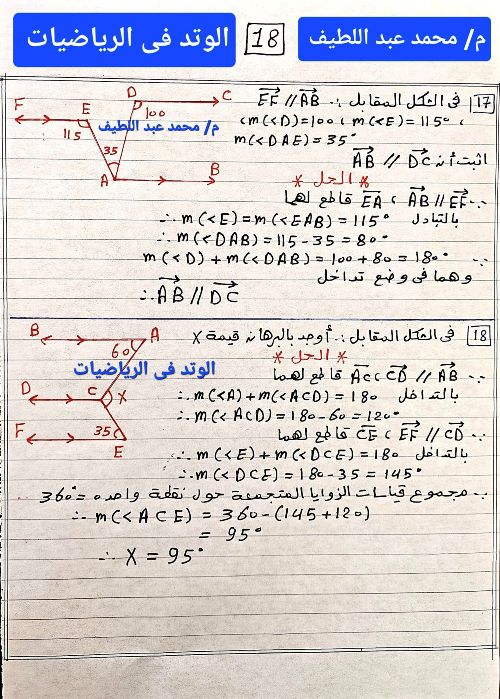 م/ محمد عبد اللطيف
18
الوتد فى الرياضيات
17 فى الشكل المقابل :. EF // AB
، m(<D)=100 ، m(<E)=115°
m(<DAE)=35°
اثبت أن AB // DC
* الحل *
∵ AB // EF ، EA قاطع لهما
∴ m(<E)=m(<EAB)=115° بالتبادل
∴ m(<DAB)=115-35=80°
∵ m(<D)+m(<DAB)=100+80=180°
وهما فى وضع تداخل
∴ AB // DC
D
C
100
F
E
115
م/ محمد عبد اللطيف
35
A
B
18 فى الشكل المقابل :. أوجد بالبرهان قيمة X
* الحل *
∵ AB // CD ، AC قاطع لهما
∴ m(<A)+m(<ACD)=180 بالتداخل
∴ m(<ACD)=180-60=120°
∵ CD // EF ، CE قاطع لهما
∴ m(<E)+m(<DCE)=180 بالتداخل
∴ m(<DCE)=180-35=145°
∵ مجموع قياسات الزوايا المتجمعة حول نقطة واحده = 360°
∴ m(<ACE) = 360-(145+120)
= 95°
∴ X = 95°
B
A
60
الوتد فى الرياضيات
D
C
X
F
35
E